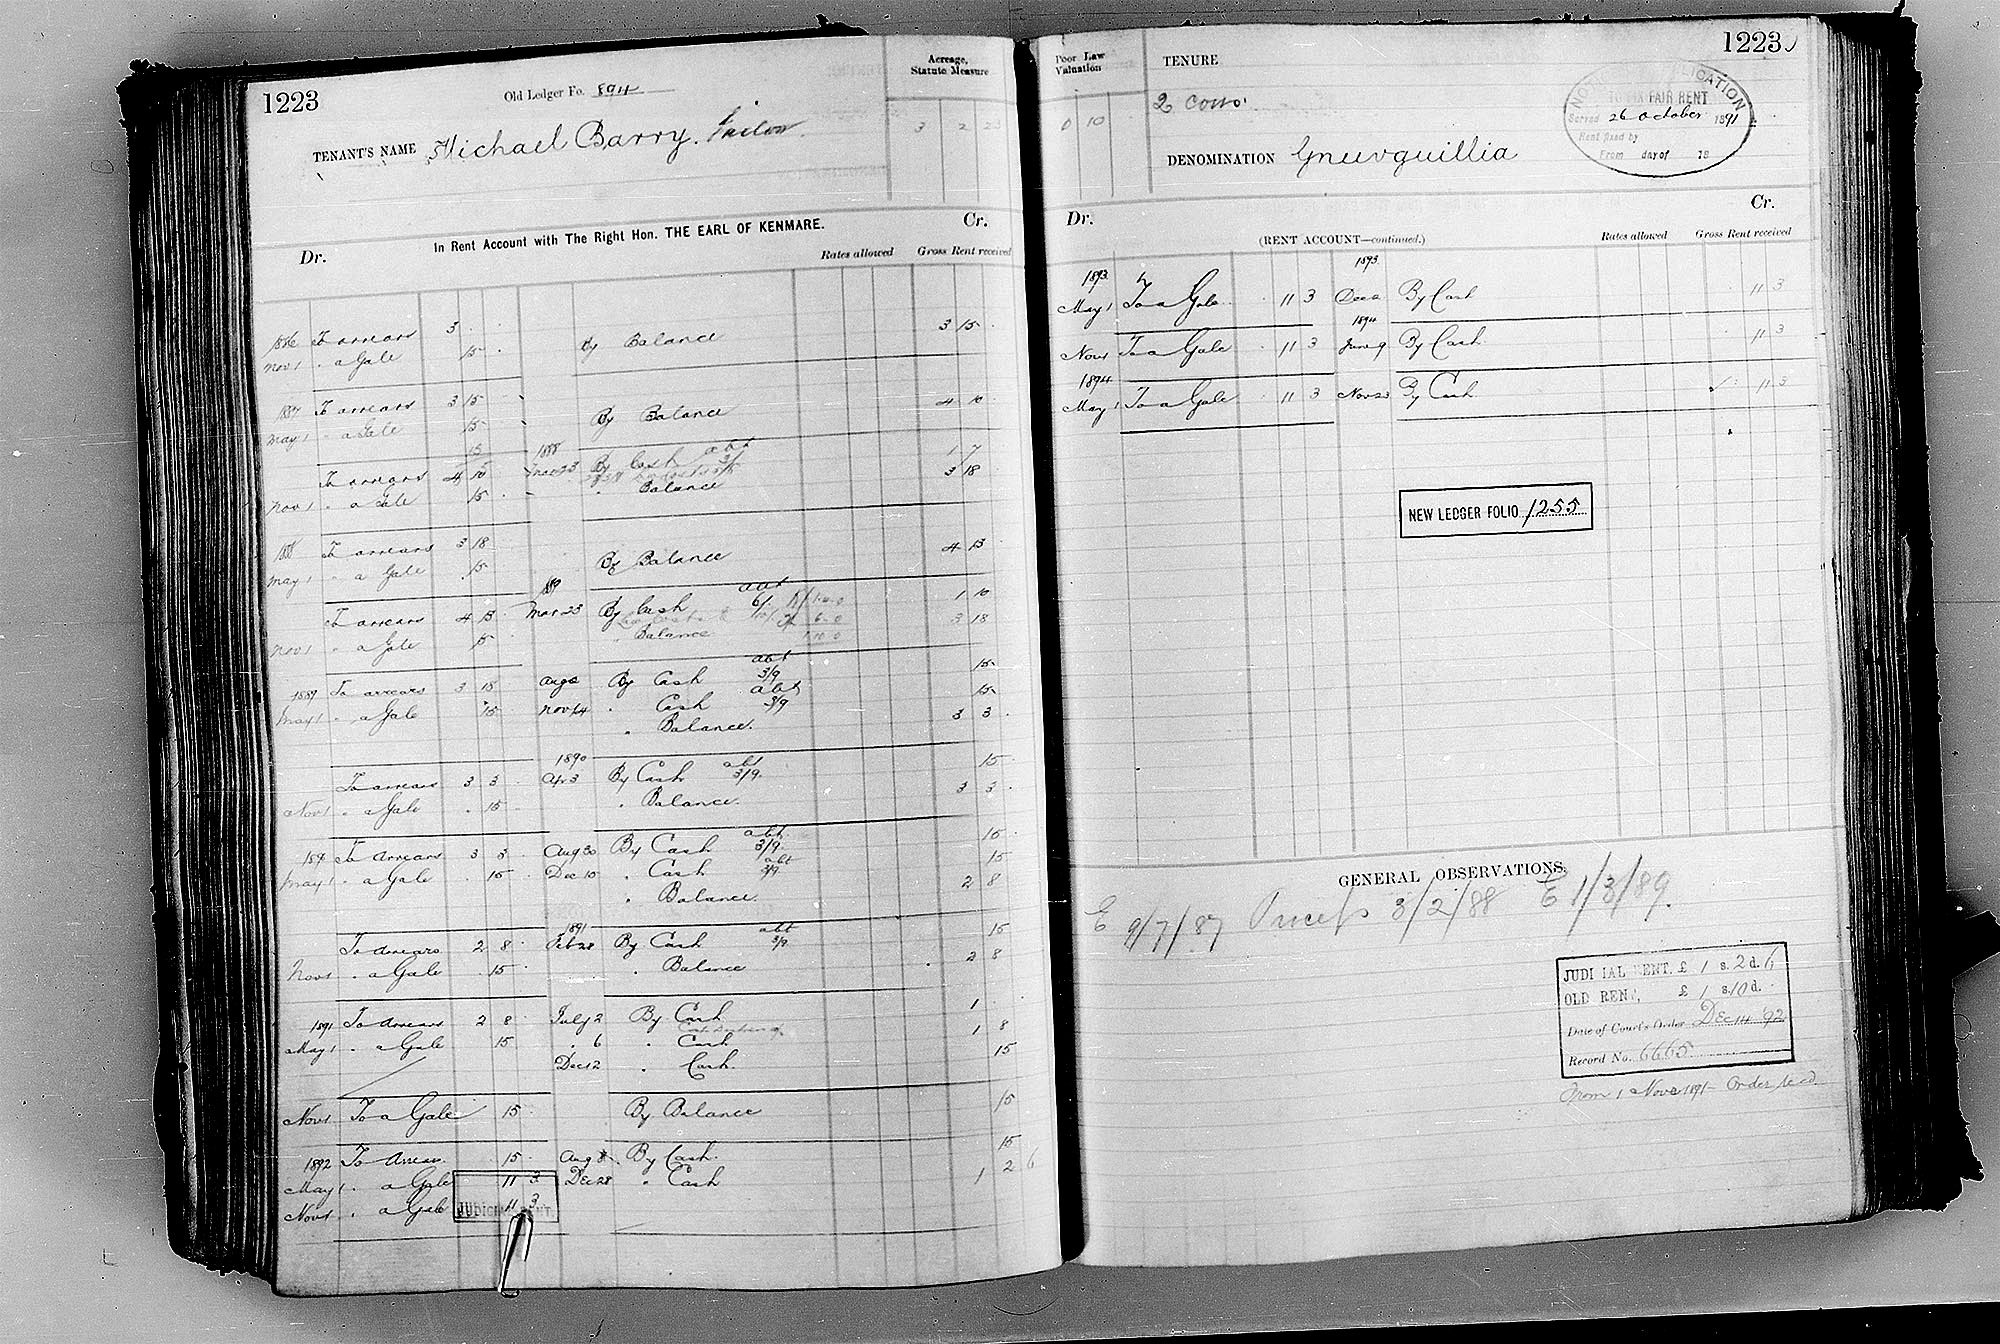 1223
Old Ledger Fo. 894
Acreage,
Statute Measure
TENANT'S NAME Michael Barry.
3 2 23
In Rent Account with The Right Hon. THE EARL OF KENMARE.
Dr. Cr.
Rates allowed Gross Rent received
1886 To arrears 3 By Balance 3 15
Nov 1 " a Gale 15
1887 To arrears 3 15 By Balance 4 10
May 1 " a Gale 15
1888
To arrears 4 10 Mar 23 By Cash abt 1 7
Nov 1 " a Gale 15 " Balance 3 18
1888 To arrears 3 18 By Balance 4 13
May 1 " a Gale 15
1889
To arrears 4 13 Mar 23 By Cash abt 6/. 1 10
Nov 1 " a Gale 15 " Balance 3 18
1889 To arrears 3 18 Aug 2 By Cash abt 3/9 15
May 1 " a Gale 15 Nov 14 " Cash abt 3/9 15
" Balance. 3 3
1890
To arrears 3 3 Apr 3 By Cash abt 3/9 15
Nov 1 " a Gale 15 " Balance. 3 3
1890 To Arrears 3 3 Aug 30 By Cash abt 3/9 15
May 1 " a Gale 15 Dec 15 " Cash abt 3/9 15
" Balance. 2 8
1891
To Arrears 2 8 Feb 28 By Cash abt 3/9 15
Nov 1 " a Gale 15 " Balance 2 8
1891 To Arrears 2 8 July 2 By Cash 1
May 1 " a Gale 15 " 6 " Cash 1 8
Dec 12 " Cash. 15
Nov 1 To a Gale 15 By Balance 15
1892 To Arrears 15 Aug 8 By Cash. 15
May 1 " a Gale 11 3 Dec 28 " Cash 1 2 6
Nov 1 " a Gale 11 3
JUDICIAL RENT.
1223
Poor Law
Valuation
TENURE
0 10
DENOMINATION Gneevguillia
NOTICE APPLICATION
TO FIX FAIR RENT
Served 26 October 1891
Rent fixed by
From day of 18
Dr. Cr.
(RENT ACCOUNT—continued.)
Rates allowed Gross Rent received
1893 1893
May 1 To a Gale 11 3 Dec 2 By Cash 11 3
1894
Nov 1 To a Gale 11 3 June 9 By Cash 11 3
1894
May 1 To a Gale 11 3 Nov 23 By Cash 11 3
NEW LEDGER FOLIO 1255
GENERAL OBSERVATIONS.
E 9/7/87 Process 3/2/88 E 1/3/89.
JUDICIAL RENT, £ 1 s. 2 d. 6
OLD RENT, £ 1 s. 10 d.
Date of Court's Order Dec 14 '92
Record No. 6665
From 1 Nov 1891 - Order